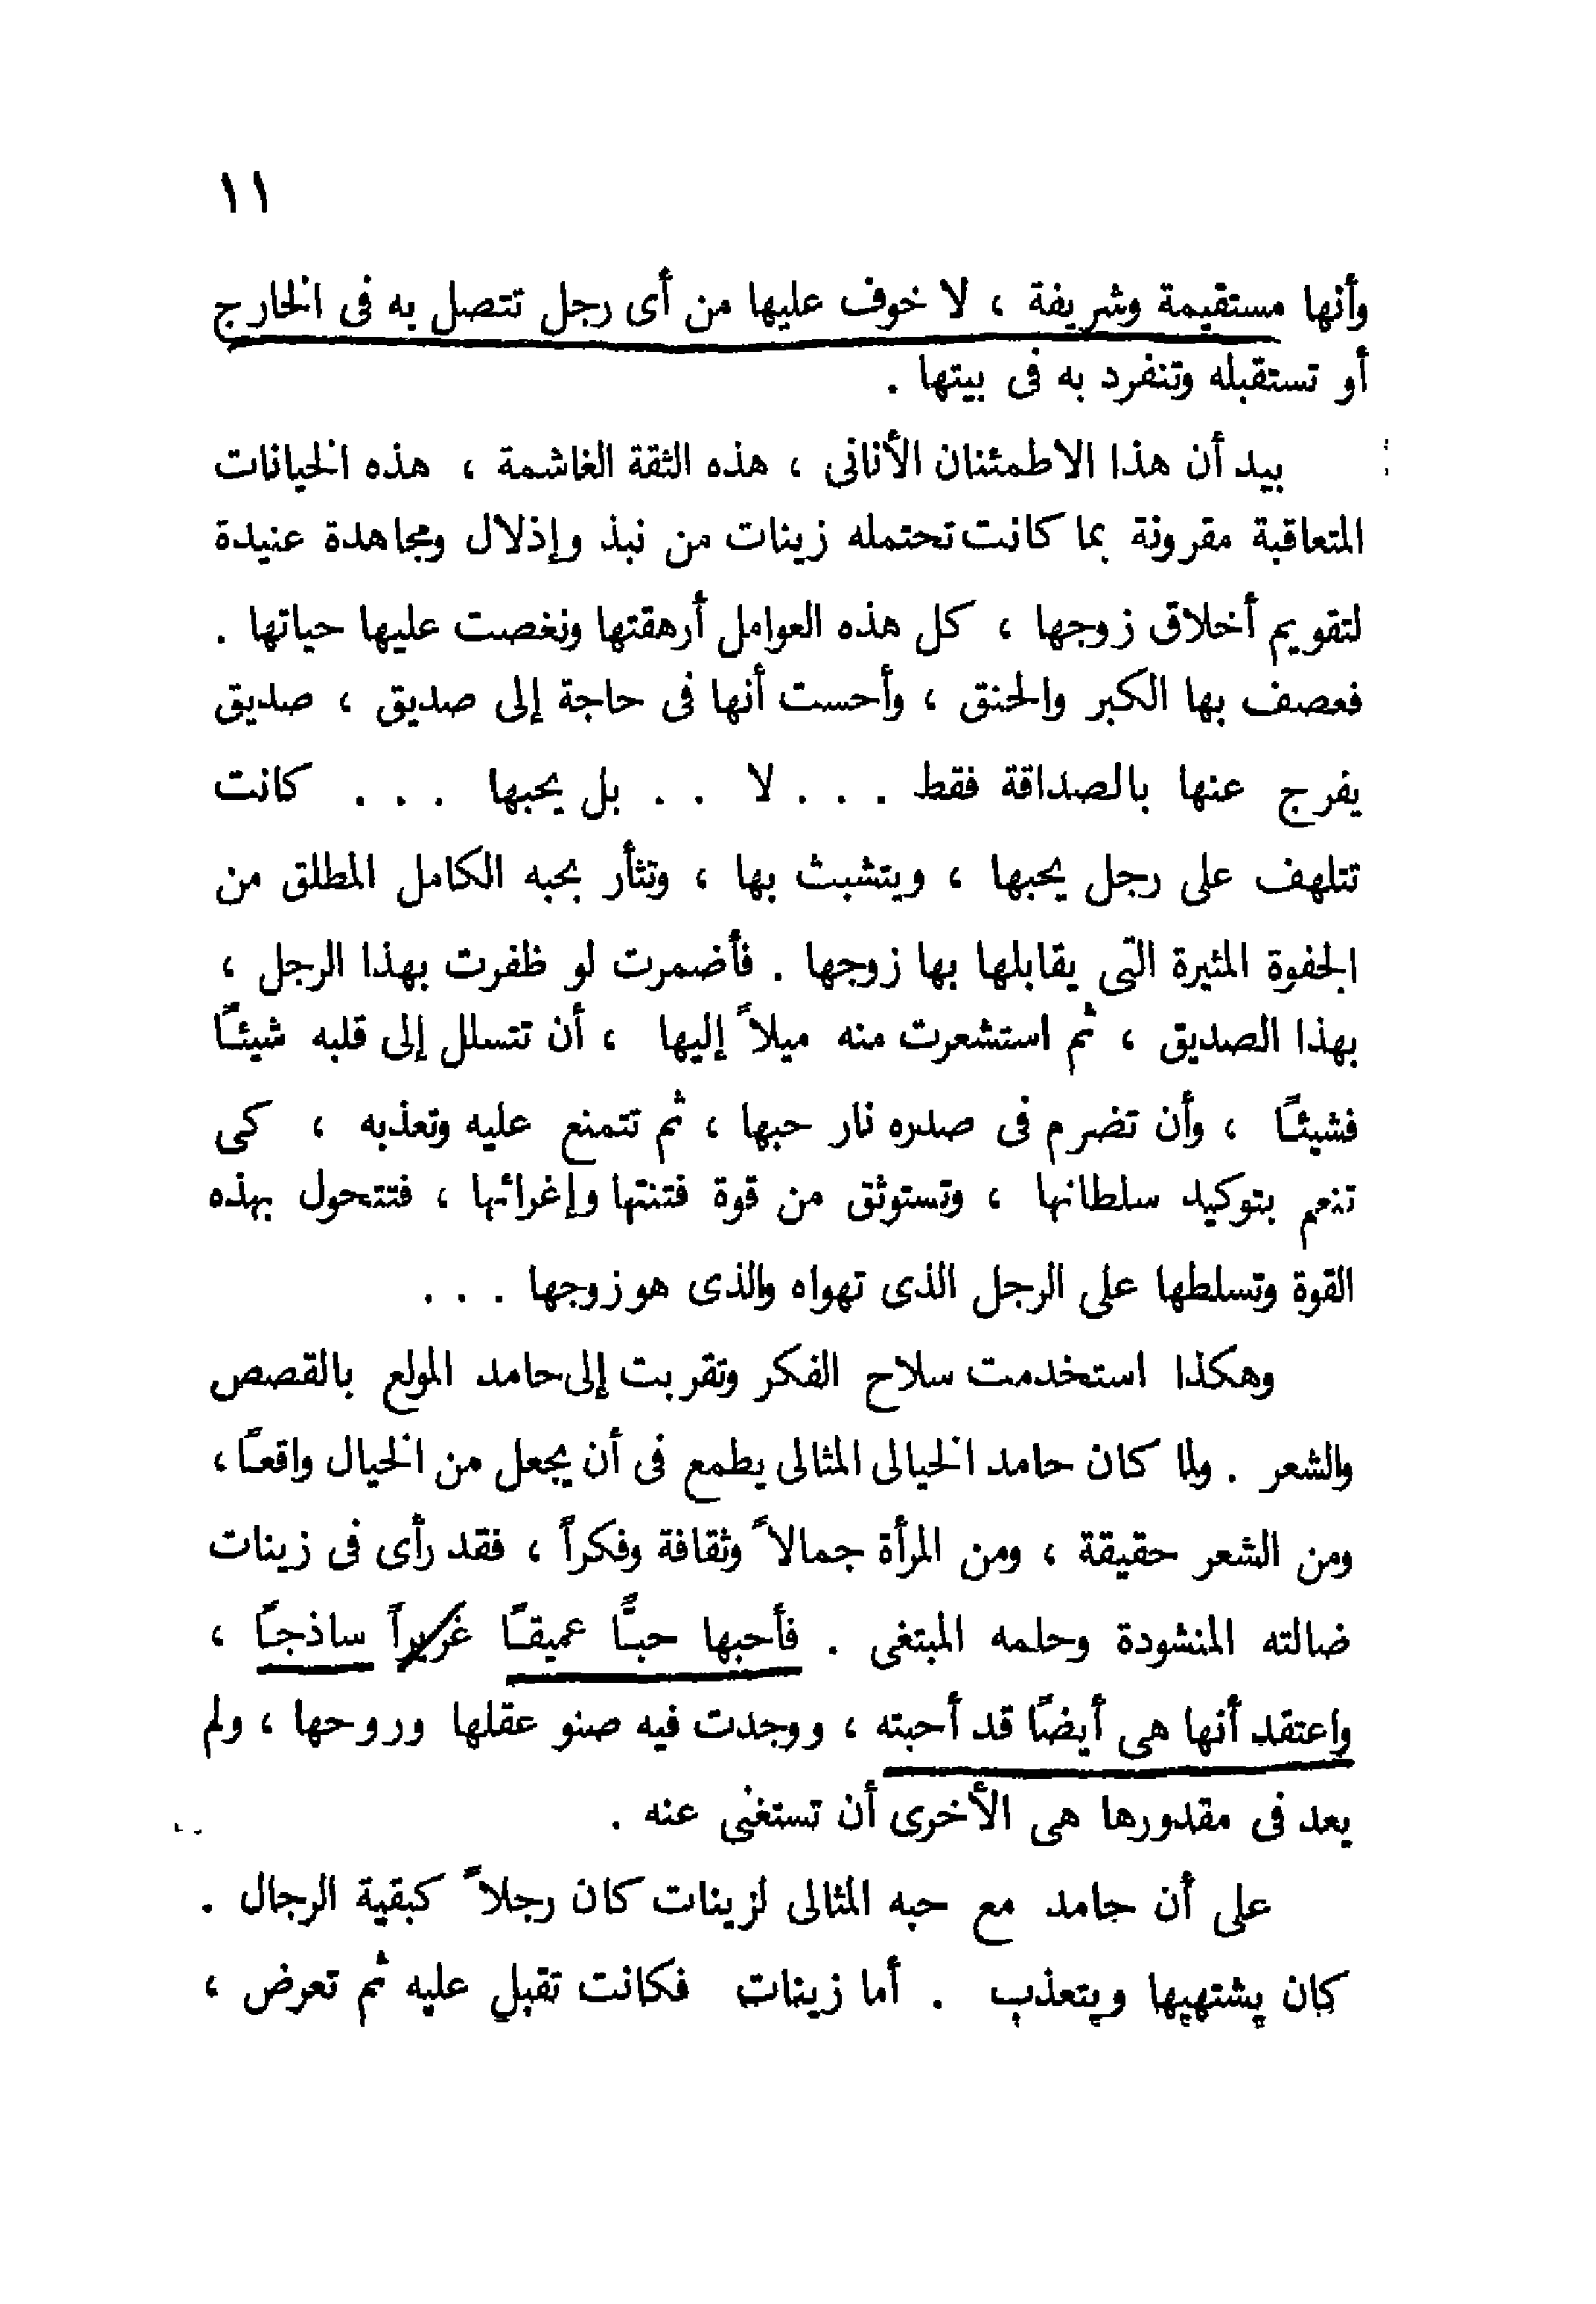 ١١
وأنها مستقيمة وشريفة ، لا خوف عليها من أى رجل تتصل به فى الخارج
أو تستقبله وتنفرد به فى بيتها .
بيد أن هذا الاطمئنان الأنانى ، هذه الثقة الغاشمة ، هذه الخيانات
المتعاقبة مقرونة بما كانت تحتمله زينات من نبذ وإذلال ومجاهدة عنيدة
لتقويم أخلاق زوجها ، كل هذه العوامل أرهقتها ونغصت عليها حياتها .
فعصف بها الكبر والحنق ، وأحست أنها فى حاجة إلى صديق ، صديق
يفرج عنها بالصداقة فقط . . . لا . . بل يحبها . . . كانت
تتلهف على رجل يحبها ، ويتشبث بها ، وتثأر بحبه الكامل المطلق من
الجفوة المثيرة التى يقابلها بها زوجها . فأضمرت لو ظفرت بهذا الرجل ،
بهذا الصديق ، ثم استشعرت منه ميلاً إليها ، أن تتسلل إلى قلبه شيئًا
فشيئًا ، وأن تضرم فى صدره نار حبها ، ثم تتمنع عليه وتعذبه ، كى
تنعم بتوكيد سلطانها ، وتستوثق من قوة فتنتها وإغرائها ، فتتحول بهذه
القوة وتسلطها على الرجل الذى تهواه والذى هو زوجها . . .
وهكذا استخدمت سلاح الفكر وتقربت إلى حامد المولع بالقصص
والشعر . ولما كان حامد الخيالى المثالى يطمع فى أن يجعل من الخيال واقعًا ،
ومن الشعر حقيقة ، ومن المرأة جمالاً وثقافة وفكراً ، فقد رأى فى زينات
ضالته المنشودة وحلمه المبتغى . فأحبها حبًّا عميقًا غريراً ساذجًا ،
واعتقد أنها هى أيضًا قد أحبته ، ووجدت فيه صنو عقلها وروحها ، ولم
يعد فى مقدورها هى الأخرى أن تستغنى عنه .
على أن حامد مع حبه المثالى لزينات كان رجلاً كبقية الرجال .
كان يشتهيها ويتعذب . أما زينات فكانت تقبل عليه ثم تعرض ،